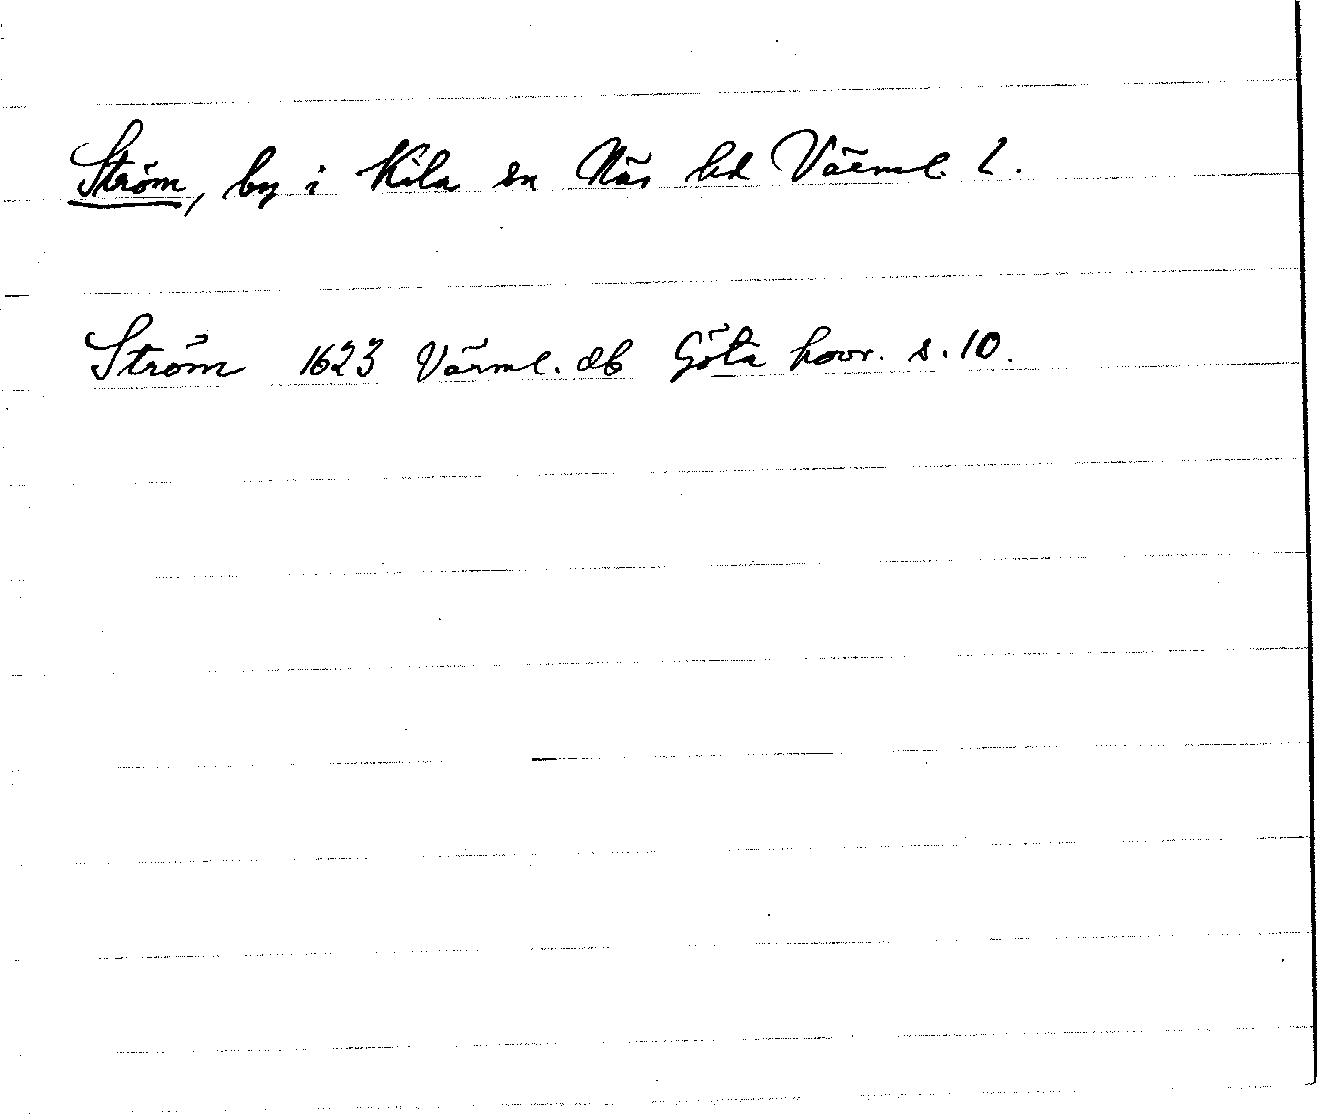 Ström, by i Kila sn Näs hd Värml. l.
Ström 1623 Värml. db Göta hovr. s. 10.